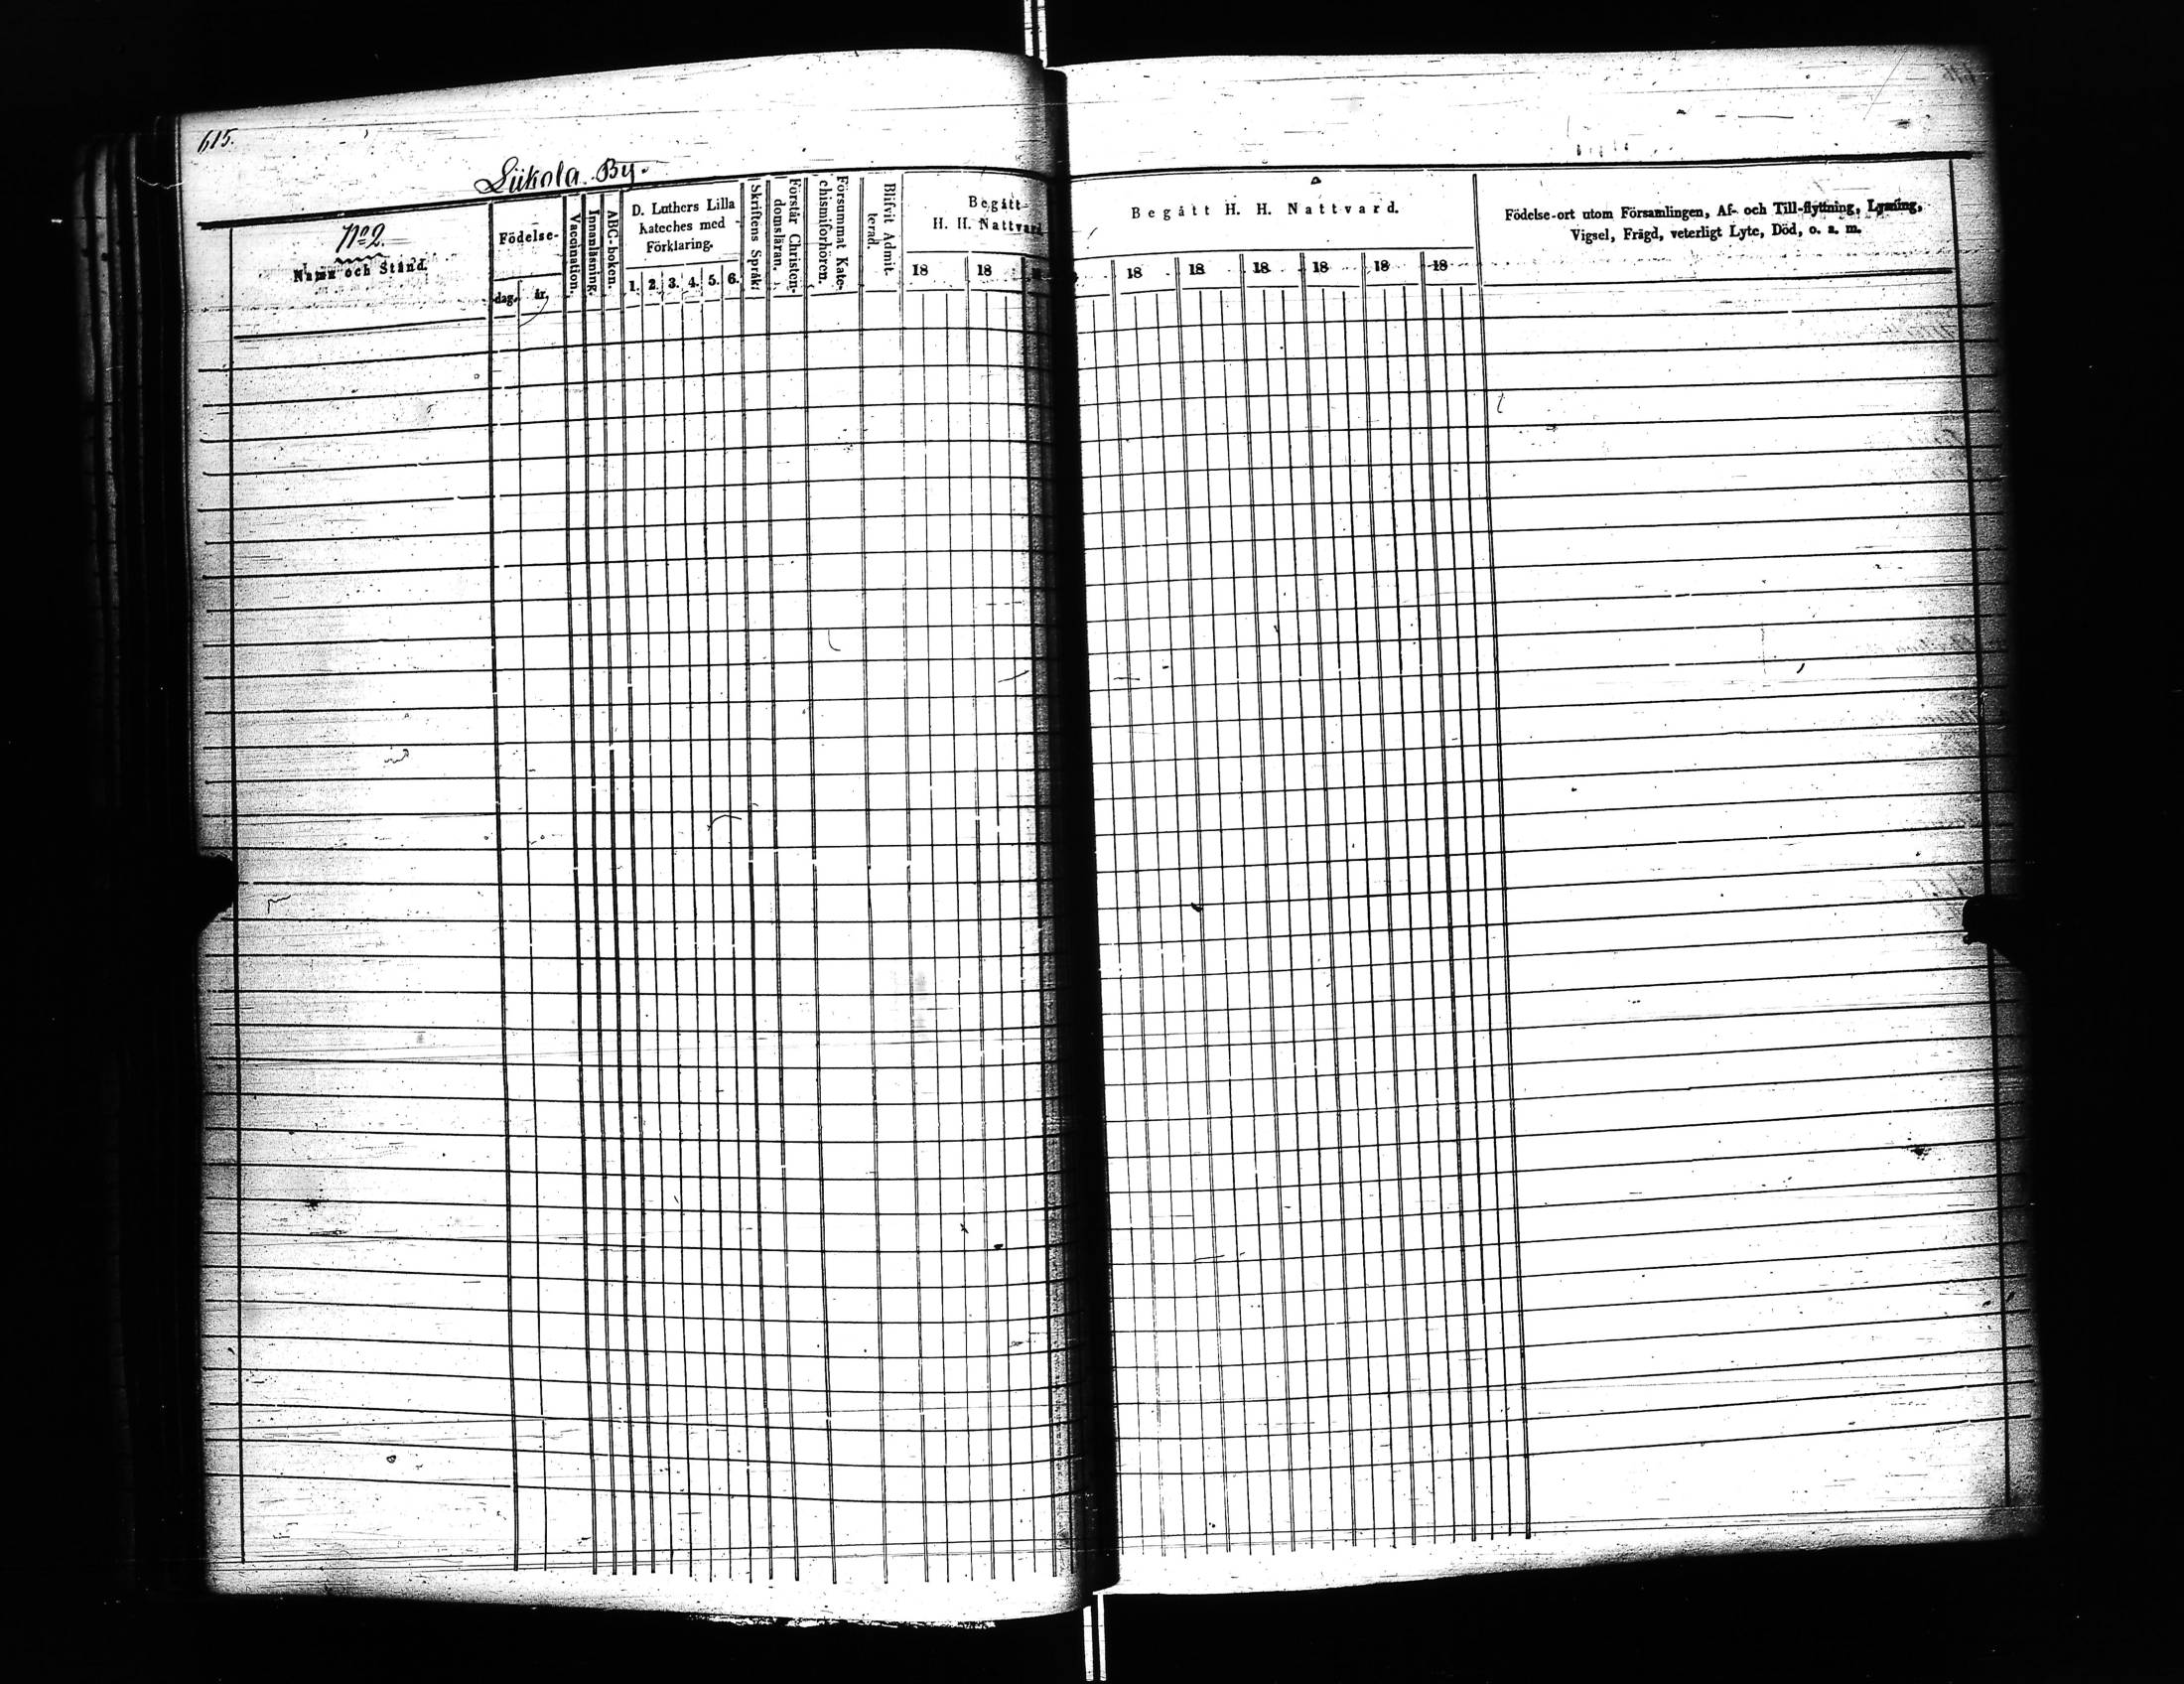 615.
Liikola By.
No 2.
Namn och Stånd.
Födelse-
dag.
år.
Vaccination.
Innanläsning.
ABC-boken.
D. Luthers Lilla
Kateches med
Förklaring.
1. 2. 3. 4. 5. 6.
Skriftens Språk.
Förstår Christen-
domsläran.
Försummat Kate-
chismiförhören.
Blifvit Admit-
terad.
Begått
H. H. Nattvard
18 18
Begått H. H. Nattvard.
18 18 18 18 18 18
Födelse-ort utom Församlingen, Af- och Till-flyttning, Lysning,
Vigsel, Frägd, veterligt Lyte, Död, o. s. m.